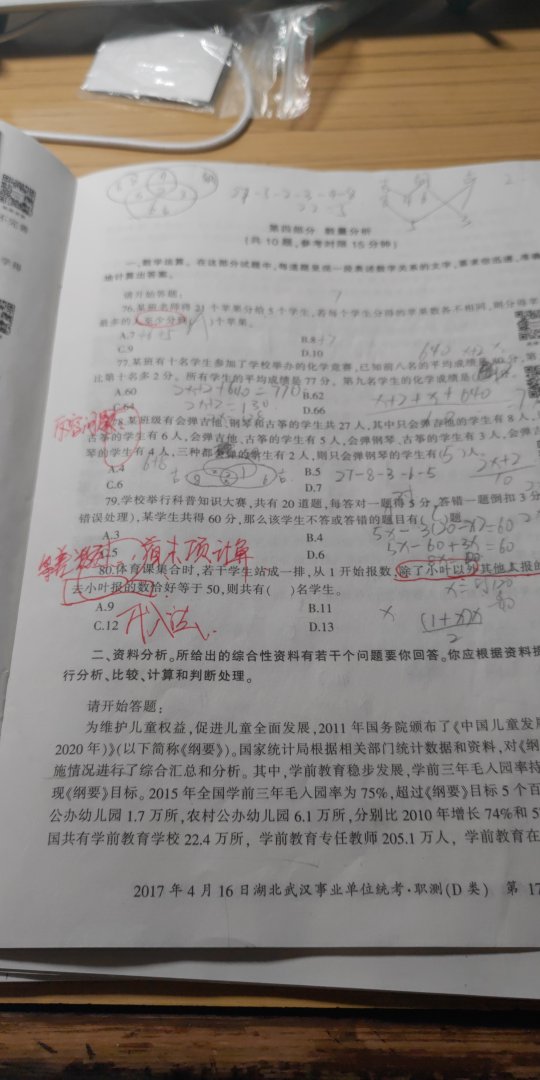 第四部分 数量分析
(共10题,参考时限15分钟)
一、数学运算。在这部分试题中,每道题呈现一段表述数学关系的文字,要求你迅速、准确
地计算出答案。
请开始答题:
76.某班老师将21个苹果分给5个学生,若每个学生分得的苹果数各不相同,则分得苹
最多的人至少分得( )个苹果。
A.7
B.8
C.9
D.10
77.某班有十名学生参加了学校举办的化学竞赛,已知前八名的平均成绩是80分,第
比第十名多2分。所有学生的平均成绩是77分,第九名学生的化学成绩是(
A.60
B.62
C.64
D.66
2x+2+640=770
2x+2=130
x+2+x+640
78.某班级有会弹吉他、钢琴和古筝的学生共27人,其中只会弹吉他的学生有8人,
古筝的学生有6人,会弹吉他、古筝的学生有5人,会弹钢琴、古筝的学生有3人,会弹吉
琴的学生有4人,三种都会弹的学生有2人,则只会弹钢琴的学生有( 5 )人。
A.4
B.5
C.6
D.7
27-8-3-6-5
79.学校举行科普知识大赛,共有20道题,每答对一题得5分,答错一题倒扣3分
错误处理),某学生共得60分,那么该学生不答或答错的题目有( )题。
A.3
B.4
C.5
D.6
5x-3(20-x)=60
5x-60+3x=60
首末项计算
80.体育课集合时,若干学生站成一排,从1开始报数,除了小叶以外其他人报的
去小叶报的数恰好等于50,则共有( )名学生。
A.9
B.11
C.12
D.13
代入法
(1+x)x
2
二、资料分析。所给出的综合性资料有若干个问题要你回答。你应根据资料提
行分析、比较、计算和判断处理。
请开始答题:
为维护儿童权益,促进儿童全面发展,2011年国务院颁布了《中国儿童发展
2020年)》(以下简称《纲要》)。国家统计局根据相关部门统计数据和资料,对《纲
施情况进行了综合汇总和分析。其中,学前教育稳步发展,学前三年毛入园率持
现《纲要》目标。2015年全国学前三年毛入园率为75%,超过《纲要》目标5个百
公办幼儿园1.7万所,农村公办幼儿园6.1万所,分别比2010年增长74%和5
国共有学前教育学校22.4万所,学前教育专任教师205.1万人,学前教育在
2017年4月16日湖北武汉事业单位统考·职测(D类) 第17